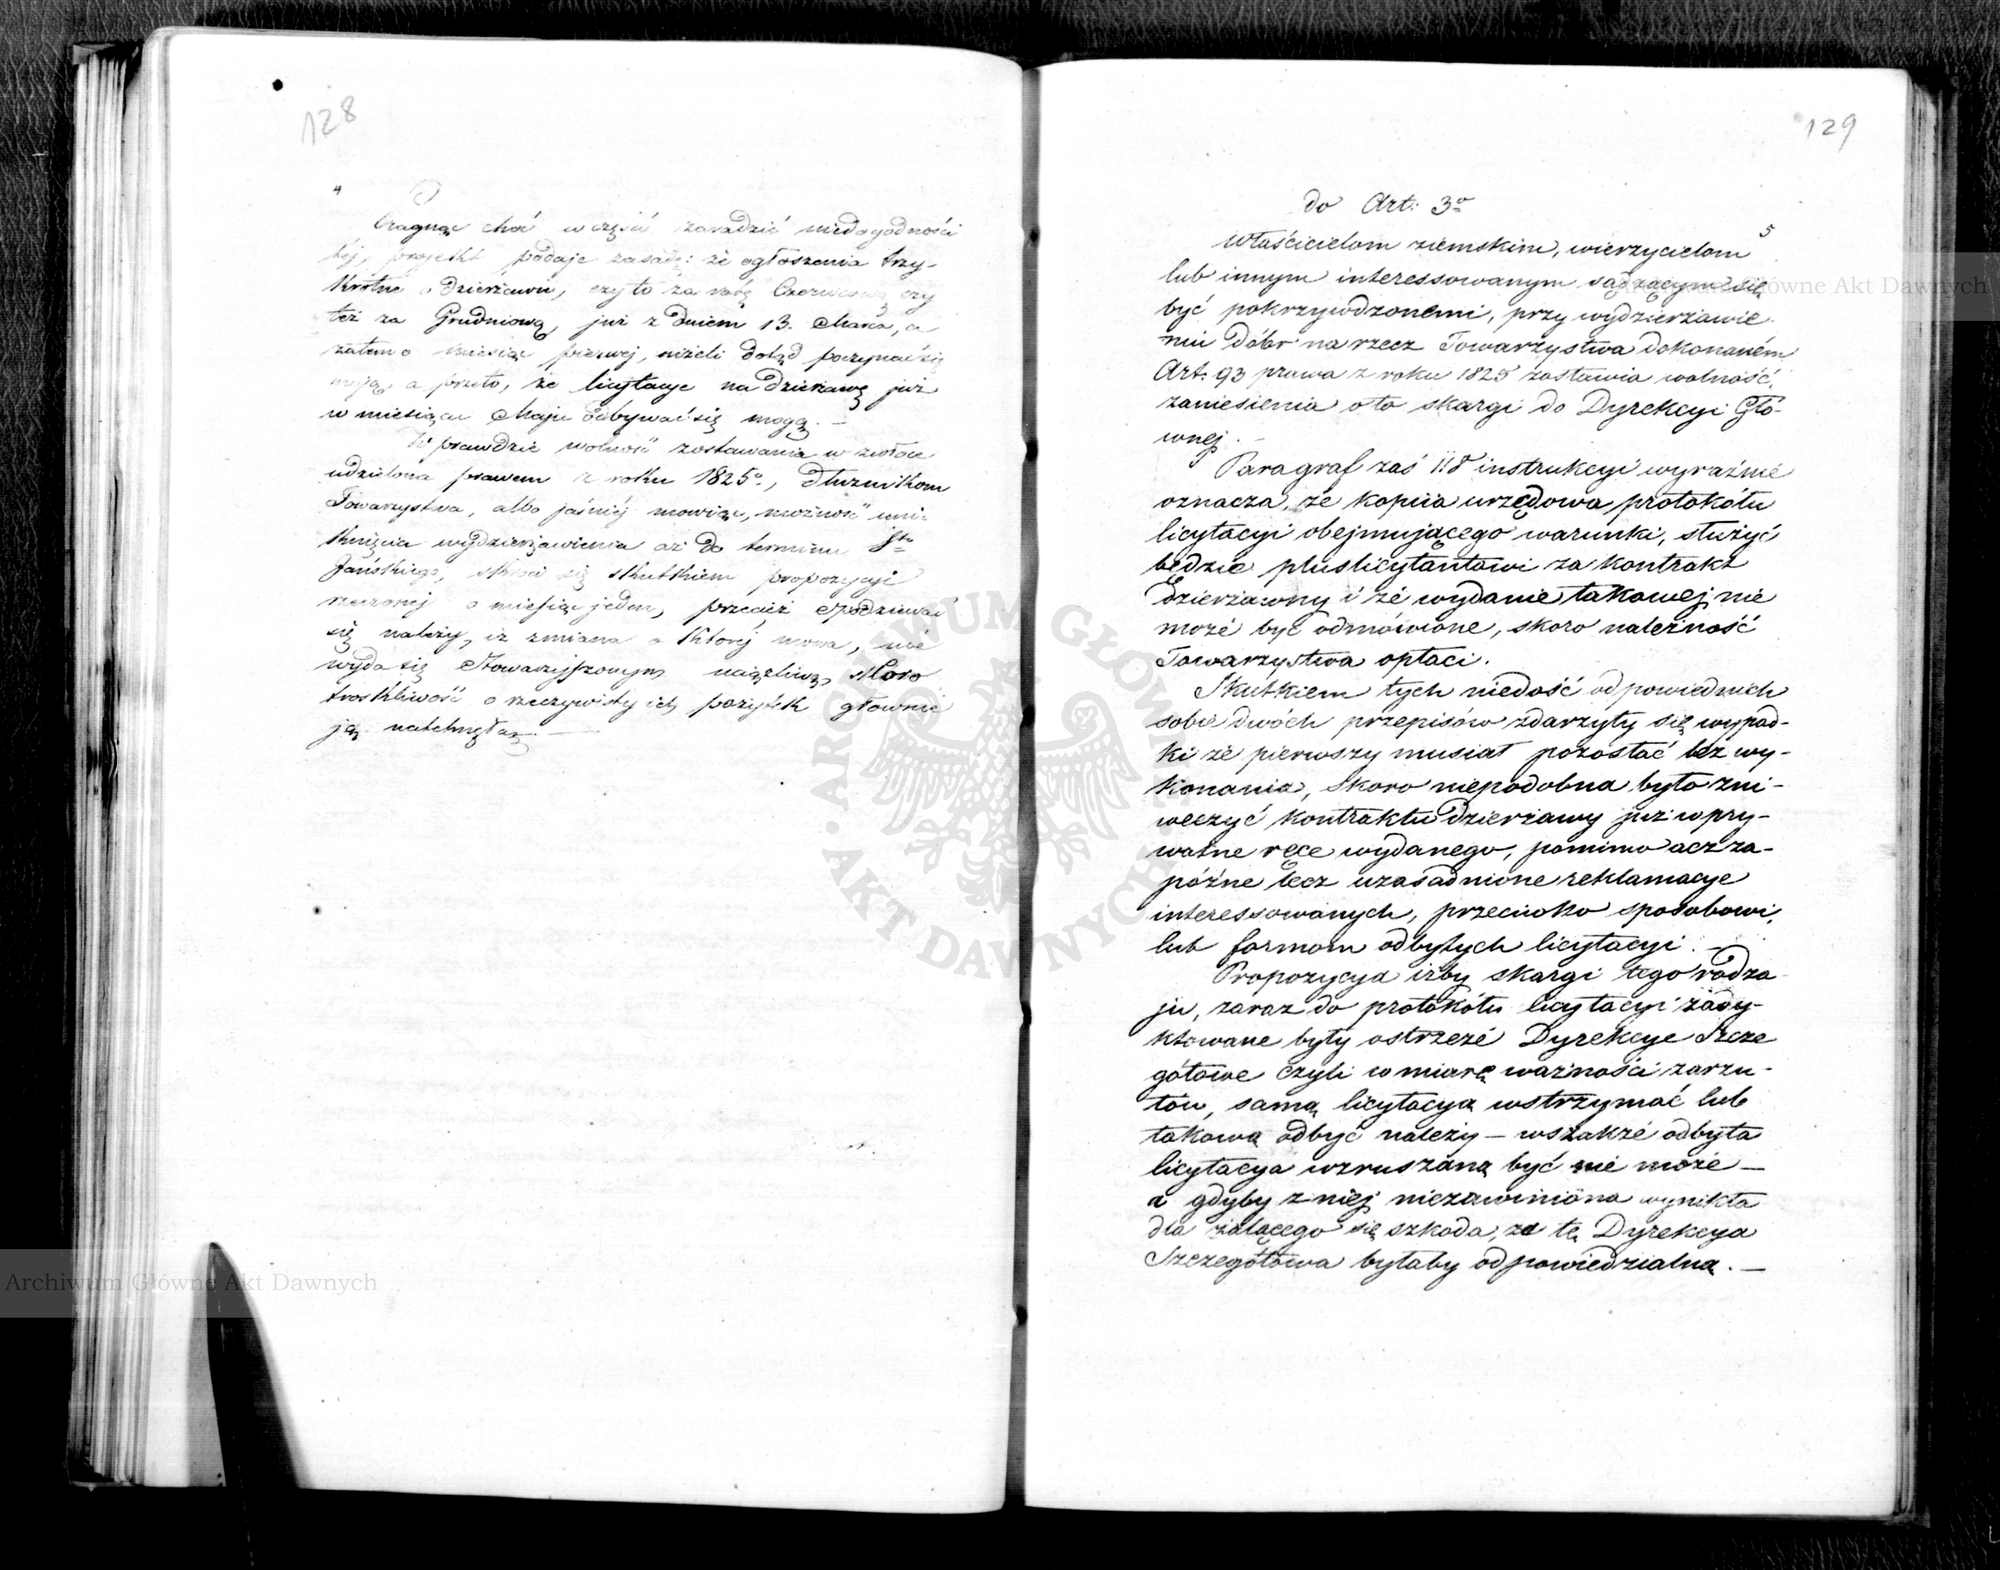 128
4
Pragnąc choć w części zaradzić niedogodności
téj, projekt podaje zasadę: że ogłoszenia trzy-
krotne o dzierżawie, czy to za ratę Czerwcową czy
też za Grudniową, już z dniem 13. Marca, a
zatem o miesiąc pierwej, niżeli dotąd poczynać się
mają, a przeto, że licytacye na dzierżawę już
w miesiącu Maju odbywać się mogą. —
W prawdzie wolność zostawania w zwłoce
udzielona prawem z roku 1825º, dłużnikom
Towarzystwa, albo jaśniéj mowiąc, możność uni-
knięcia wydzierżawienia aż do terminu Sto
Jańskiego, skróci się skutkiem propozycyi
rzeczonej o miesiąc jeden, przecież spodziewać
się należy, iż zmiana o któréj mowa, nie
wyda się Stowarzyszonym uciążliwą, skoro
troskliwość o rzeczywisty ich pożytek głownie
ją natchnęła. —
129
do Art: 3º
5
Właścicielom ziemskim, wierzycielom
lub innym interessowanym sądzącym się
być pokrzywdzonemi, przy wydzierżawie-
niu Dóbr na rzecz Towarzystwa dokonaném
Art: 93 prawa z roku 1825 zostawia wolność,
zaniesienia o to skargi do Dyrekcyi Głó-
wnej. —
Paragraf zaś 118 instrukcyi wyraźnie
oznacza, że kopiia urzędowa protokółu
licytacyi obejmującego warunki, służyć
będzie pluslicytantowi za kontrakt
Dzierżawny i że wydanie takowej nie
może być odmówione, skoro należność
Towarzystwa opłaci.
Skutkiem tych niedość odpowiednich
sobie dwóch przepisów zdarzyły się wypad-
ki że pierwszy musiał pozostać bez wy-
konania, skoro niepodobna było zni-
weczyć kontraktu Dzierżawy już w pry-
watne ręce wydanego, pomimo acz za-
późne lecz uzasadnione reklamacye
interessowanych, przeciwko sposobowi,
lub formom odbytych licytacyi. —
Propozycya iżby skargi tego rodza-
ju, zaraz do protokółu licytacyi zady-
ktowane były ostrzeże Dyrekcye Szcze
gółowe czyli w miarę ważności zarzu-
tów, samą licytacyą wstrzymać lub
takową odbyć należy — wszakże odbyta
licytacya wzruszaną być nie może —
a gdyby z niej niezawiniona wynikła
dla żalącego się szkoda, za tę Dyrekcya
Szczegółowa byłaby odpowiedzialną. —
ARCHIWUM GŁÓWNE AKT DAWNYCH
Archiwum Główne Akt Dawnych
Archiwum Główne Akt Dawnych